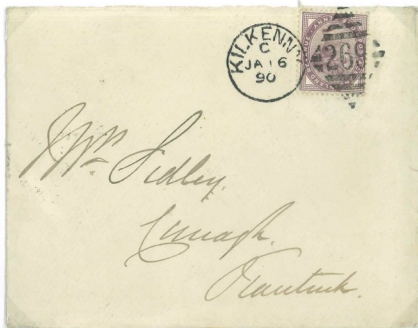 KILKENNY
C
JA 16
90
269
Mrs Sidley.
Curragh.
Kanturk.